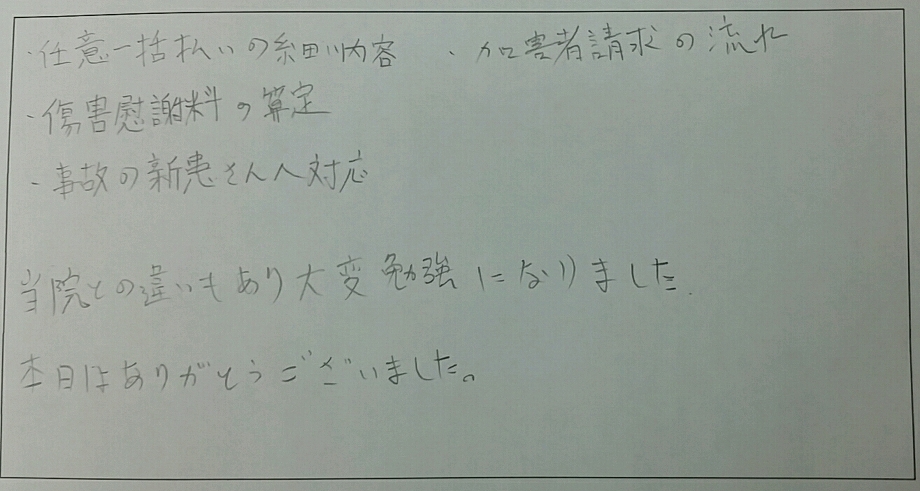 ・任意一括払いの細川内容 ・加害者請求の流れ
・傷害慰謝料の算定
・事故の新患さんへ対応
当院との違いもあり大変勉強になりました.
本日はありがとうございました。